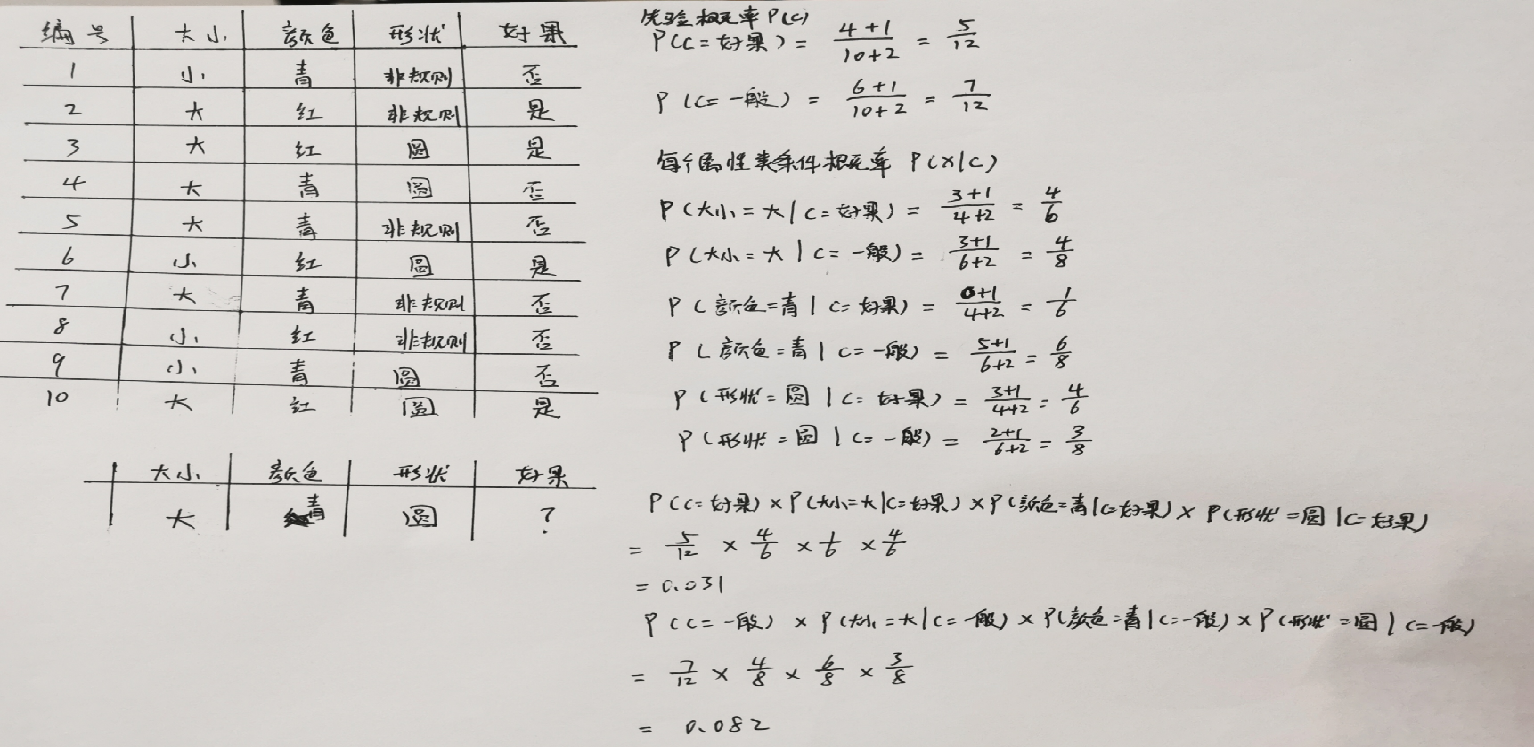 编号 大小 颜色 形状 好果
1 小 青 非规则 否
2 大 红 非规则 是
3 大 红 圆 是
4 大 青 圆 否
5 大 青 非规则 否
6 小 红 圆 是
7 大 青 非规则 否
8 小 红 非规则 否
9 小 青 圆 否
10 大 红 圆 是
大小 颜色 形状 好果
大 青 圆 ?
先验概率 P(c)
P(C=好果) = 4+1/10+2 = 5/12
P(C=一般) = 6+1/10+2 = 7/12
每个属性类条件概率 P(x|C)
P(大小=大|C=好果) = 3+1/4+2 = 4/6
P(大小=大|C=一般) = 3+1/6+2 = 4/8
P(颜色=青|C=好果) = 0+1/4+2 = 1/6
P(颜色=青|C=一般) = 5+1/6+2 = 6/8
P(形状=圆|C=好果) = 3+1/4+2 = 4/6
P(形状=圆|C=一般) = 2+1/6+2 = 3/8
P(C=好果)×P(大小=大|C=好果)×P(颜色=青|C=好果)×P(形状=圆|C=好果)
= 5/12 × 4/6 × 1/6 × 4/6
= 0.031
P(C=一般)×P(大小=大|C=一般)×P(颜色=青|C=一般)×P(形状=圆|C=一般)
= 7/12 × 4/8 × 6/8 × 3/8
= 0.082